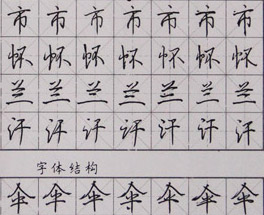 市市市市市市市
怀怀怀怀怀怀怀
兰兰兰兰兰兰兰
汗汗汗汗汗汗汗
字体结构
伞伞伞伞伞伞伞